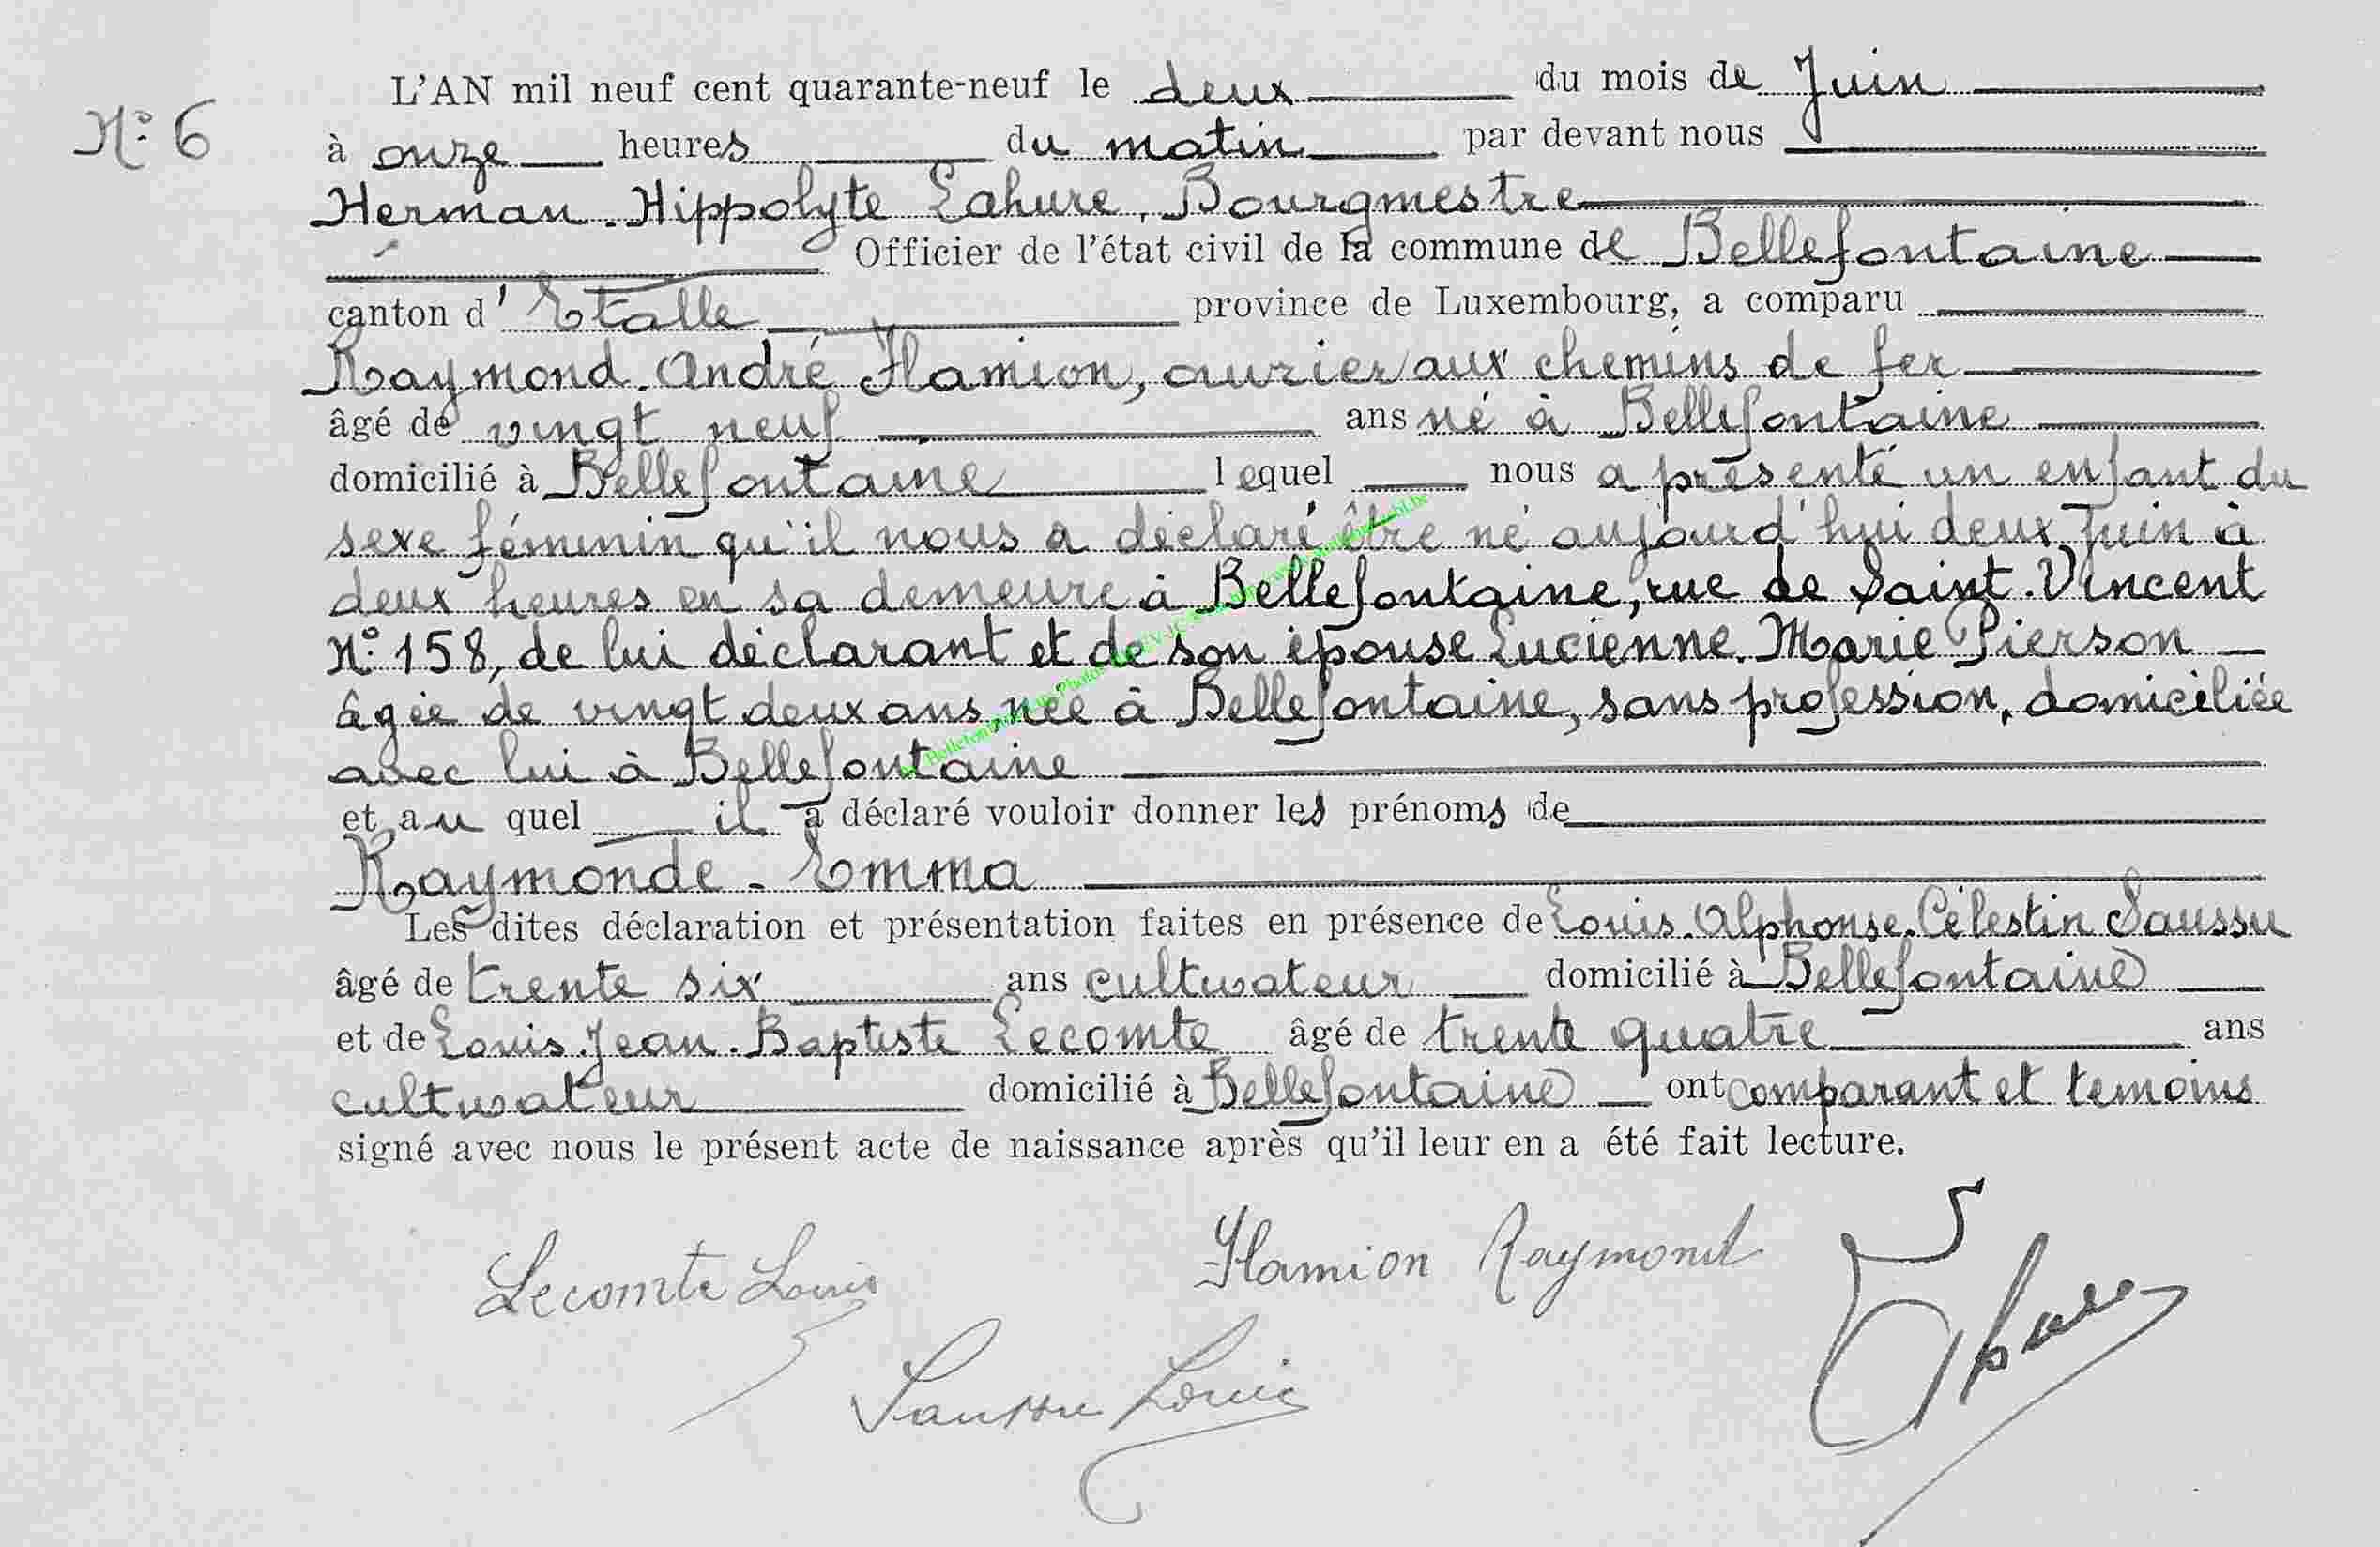 L'AN mil neuf cent quarante-neuf le deux du mois de Juin
N° 6
à onze heures du matin par devant nous
Herman-Hippolyte Lahure, Bourgmestre
Officier de l'état civil de la commune de Bellefontaine
canton d'Etalle province de Luxembourg, a comparu
Raymond-André Hamion, ouvrier aux chemins de fer
âgé de vingt neuf ans né à Bellefontaine
domicilié à Bellefontaine lequel nous a présenté un enfant du
sexe féminin qu'il nous a déclaré être né aujourd'hui deux Juin à
deux heures en sa demeure à Bellefontaine, rue de Saint-Vincent
N° 158, de lui déclarant et de son épouse Lucienne-Marie Pierson
âgée de vingt deux ans, née à Bellefontaine, sans profession, domiciliée
avec lui à Bellefontaine
et au quel il a déclaré vouloir donner les prénoms de
Raymonde-Emma
Les dites déclaration et présentation faites en présence de Louis-Alphonse-Célestin Saussu
âgé de trente six ans cultivateur domicilié à Bellefontaine
et de Louis-Jean-Baptiste Lecomte âgé de trente quatre ans
cultivateur domicilié à Bellefontaine ont comparant et temoins
signé avec nous le présent acte de naissance après qu'il leur en a été fait lecture.
Hamion Raymond
Lecomte Louis
Saussu Louis